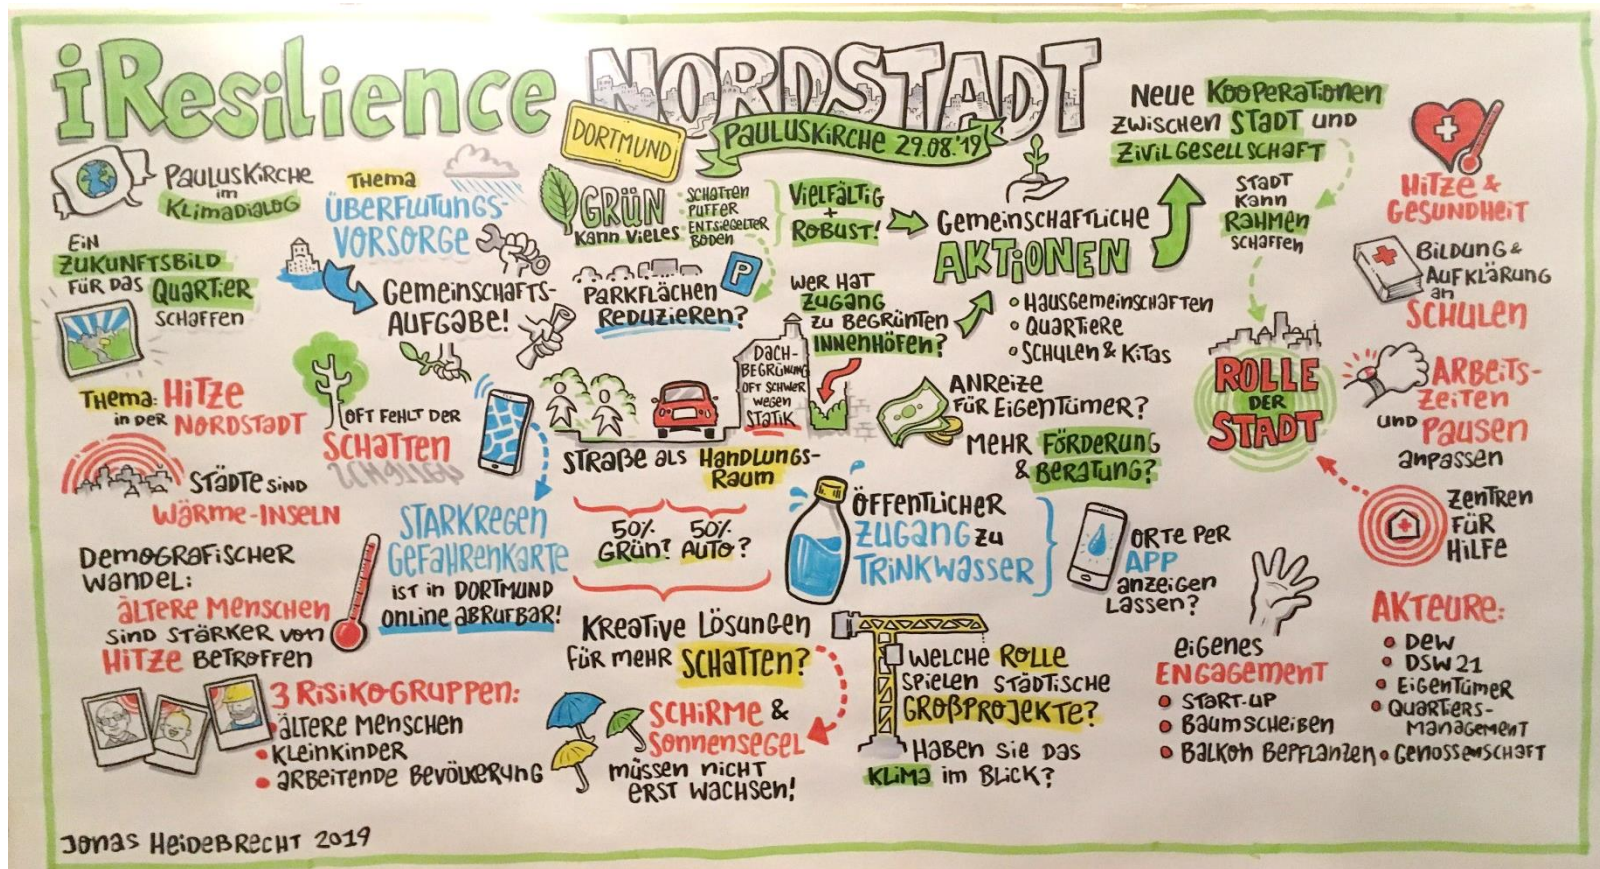 iResilience NORDSTADT
DORTMUND
PAULUSKIRCHE 29.08.'19
PAULUSKIRCHE
im
KLIMADIALOG
EIN
ZUKUNFTSBILD
FÜR DAS QUARTIER
SCHAFFEN
THEMA: HITZE
in DER NORDSTADT
STÄDTE SIND
WÄRME-INSELN
DEMOGRAFISCHER
WANDEL:
ÄLTERE MENSCHEN
SIND STÄRKER VON
HITZE BETROFFEN
3 RISIKOGRUPPEN:
ÄLTERE MENSCHEN
• KLEINKINDER
• ARBEITENDE BEVÖLKERUNG
THEMA
ÜBERFLUTUNGS-
VORSORGE
GEMEINSCHAFTS-
AUFGABE!
OFT FEHLT DER
SCHATTEN
STARKREGEN
GEFAHRENKARTE
IST in DORTMUND
ONLINE ABRUFBAR!
GRÜN
KANN VIELES
• SCHATTEN
• PUFFER
• ENTSIEGELTER
BODEN
VIELFÄLTIG
+
ROBUST!
PARKFLÄCHEN
REDUZIEREN?
P
DACH-
BEGRÜNUNG
OFT SCHWER
WEGEN
STATIK
STRAßE ALS HANDLUNGS-
RAUM
50%
GRÜN?
50%
AUTO?
KREATIVE LÖSUNGEN
FÜR MEHR SCHATTEN?
SCHIRME &
SONNENSEGEL
MÜSSEN NICHT
ERST WACHSEN!
WER HAT
ZUGANG
ZU BEGRÜNTEN
INNENHÖFEN?
GEMEINSCHAFTLICHE
AKTIONEN
• HAUSGEMEINSCHAFTEN
• QUARTIERE
• SCHULEN & KITAS
ANREIZE
FÜR EIGENTÜMER?
MEHR FÖRDERUNG
& BERATUNG?
ÖFFENTLICHER
ZUGANG ZU
TRINKWASSER
ORTE PER
APP
ANZEIGEN
LASSEN?
WELCHE ROLLE
SPIELEN STÄDTISCHE
GROßPROJEKTE?
HABEN SIE DAS
KLIMA IM BLICK?
NEUE KOOPERATIONEN
ZWISCHEN STADT UND
ZIVILGESELLSCHAFT
STADT
KANN
RAHMEN
SCHAFFEN
ROLLE
DER
STADT
HITZE &
GESUNDHEIT
BILDUNG &
AUFKLÄRUNG
an
SCHULEN
ARBEITS-
ZEITEN
UND PAUSEN
ANPASSEN
ZENTREN
FÜR
HILFE
EIGENES
ENGAGEMENT
• START-UP
• BAUMSCHEIBEN
• BALKON BEPFLANZEN
AKTEURE:
• DEW
• DSW21
• EIGENTÜMER
• QUARTIERS-
MANAGEMENT
• GENOSSENSCHAFT
JONAS HEIDEBRECHT 2019